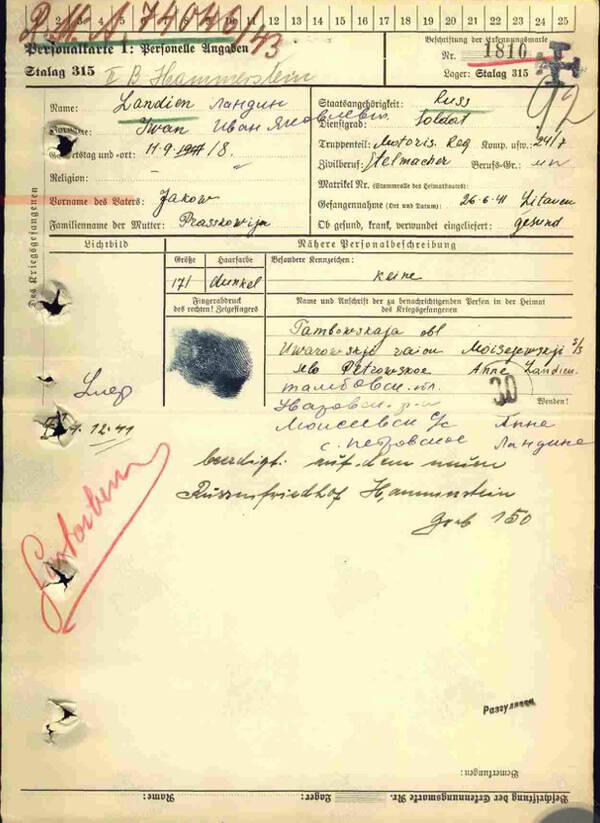 2 3 4 5 6 7 8 9 10 11 12 13 14 15 16 17 18 19 20 21 22 23 24 25
Personalkarte I: Personelle Angaben
Beschriftung der Erkennungsmarke
Stalag 315 II B Hammerstein
Nr. 1810
Lager: Stalag 315
92
Des Kriegsgefangenen
Name: Landien Ландин
Staatsangehörigkeit: Russ
Vorname: Iwan Иван Яковлевич
Dienstgrad: Soldat
Geburtstag und -ort: 11.9.
Truppenteil: Motoris. Reg Komp. usw.: 24/7
Religion:
Zivilberuf: Stelmacher Berufs-Gr.:
Matrikel Nr. (Stammrolle des Heimatstaates):
Vorname des Vaters: Jakow
Gefangennahme (Ort und Datum): 26.6.41 Litauen
Familienname der Mutter: Prasskowija
Ob gesund, krank, verwundet eingeliefert: gesund
Lichtbild
Nähere Personalbeschreibung
Größe Haarfarbe Besondere Kennzeichen:
171 dunkel keine
Fingerabdruck des rechten! Zeigefingers
Name und Anschrift der zu benachrichtigenden Person in der Heimat des Kriegsgefangenen
Tambowskaja obl
Uwarowskji raion Moisejewskji s/s
Petrowskoe Anne Landien
30
Wenden!
тамбовск. обл.
Моисеевск с/с Анне
с. Петровское Ландина
Умер
12.41
beerdigt: auf dem neuen
Russenfriedhof Hammerstein
Grab 150
Gestorben
Разгуляев
Bemerkungen:
Beschriftung der Erkennungsmarke Nr. Lager: Name: